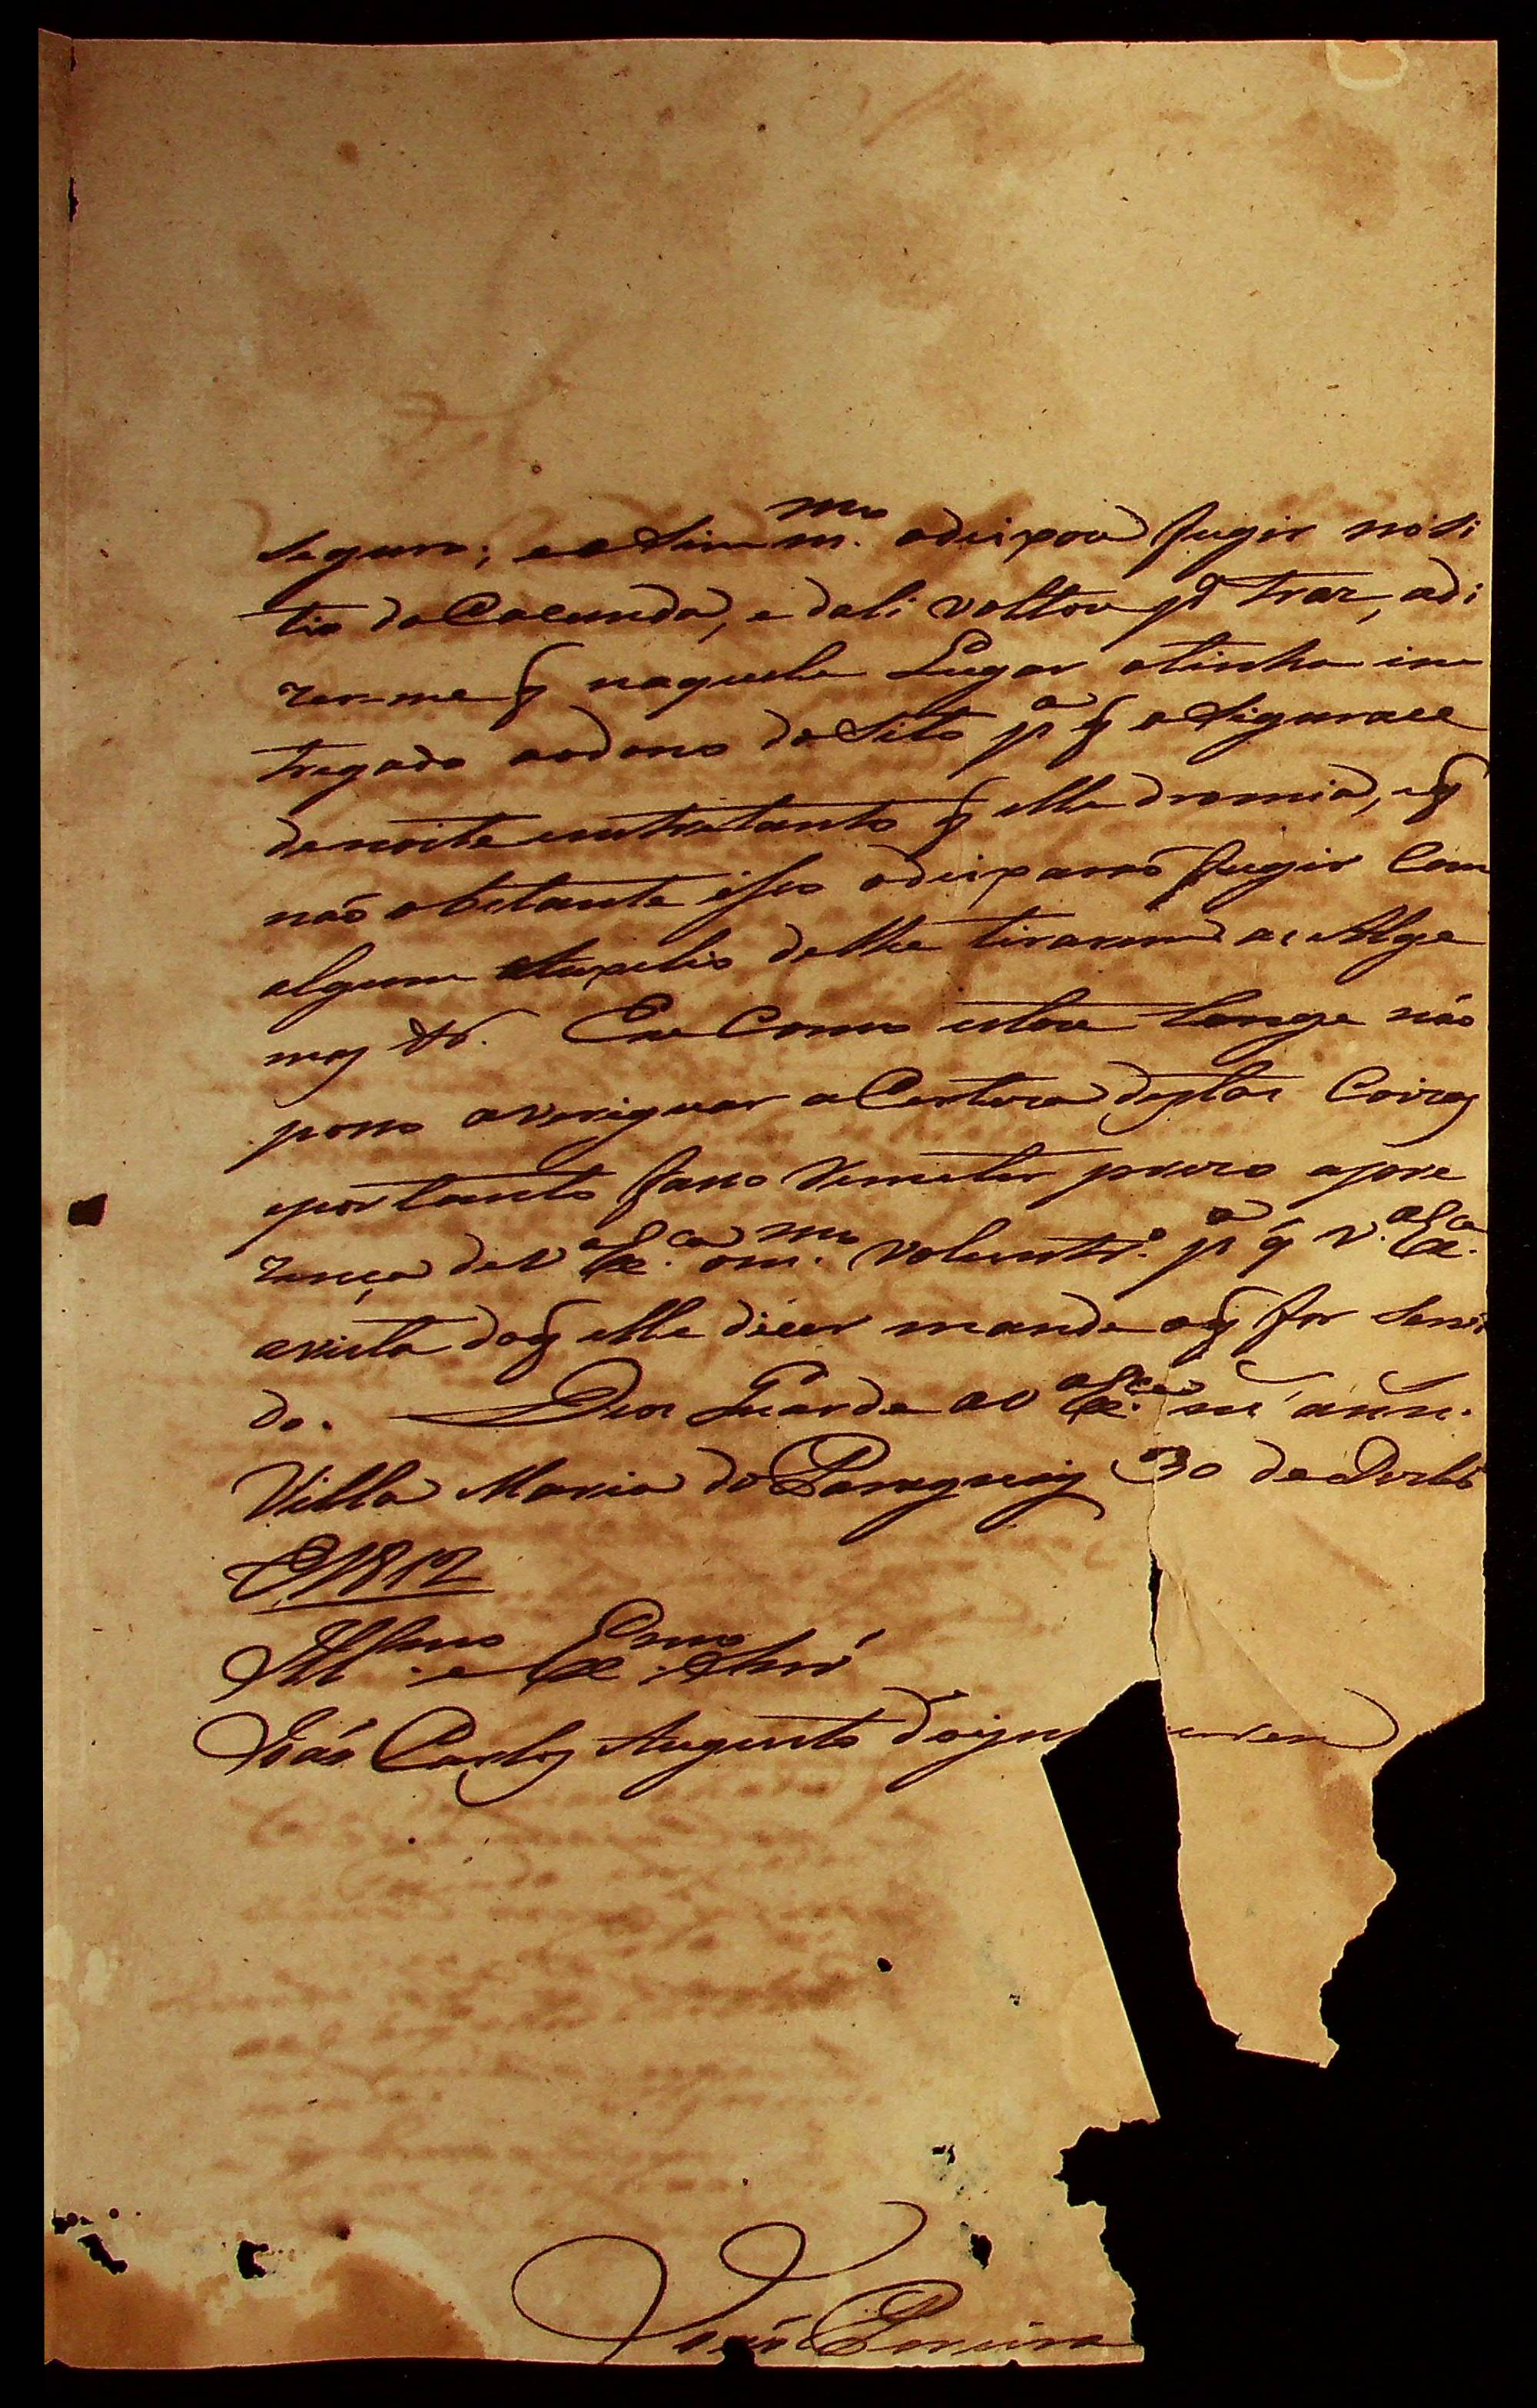 seguro; e aSim m.mo odeixou fugir no Si
tio do Cacunda, e dali voltou p.a traz, adi
zerme q naquele Lugar otinha in
tregado aodono do Sitio p.a q oSigurace
denoite emtretanto q elle dromia, eq
não obstante isso odeixarão fugir Com
algum delle tirarem as Alge
mas &. Eu Como estou longe não
poso averiguar aCerteza destas Coizas
eportanto faso Remeter prezo apre
zença de V Ex.ca om.mo Voluntr.o p.a q V. Ex.ca
avista doq elle dicer mande oq for Servi
do. Deos Guarde a V Ex.ca m.s ann.s
Villa Maria do Paraguay 30 de Dezbr.o
D 1812
Ill.mo e Ex.mo Snr.
João Carlos Augusto d'Oyn usen
João Pereira